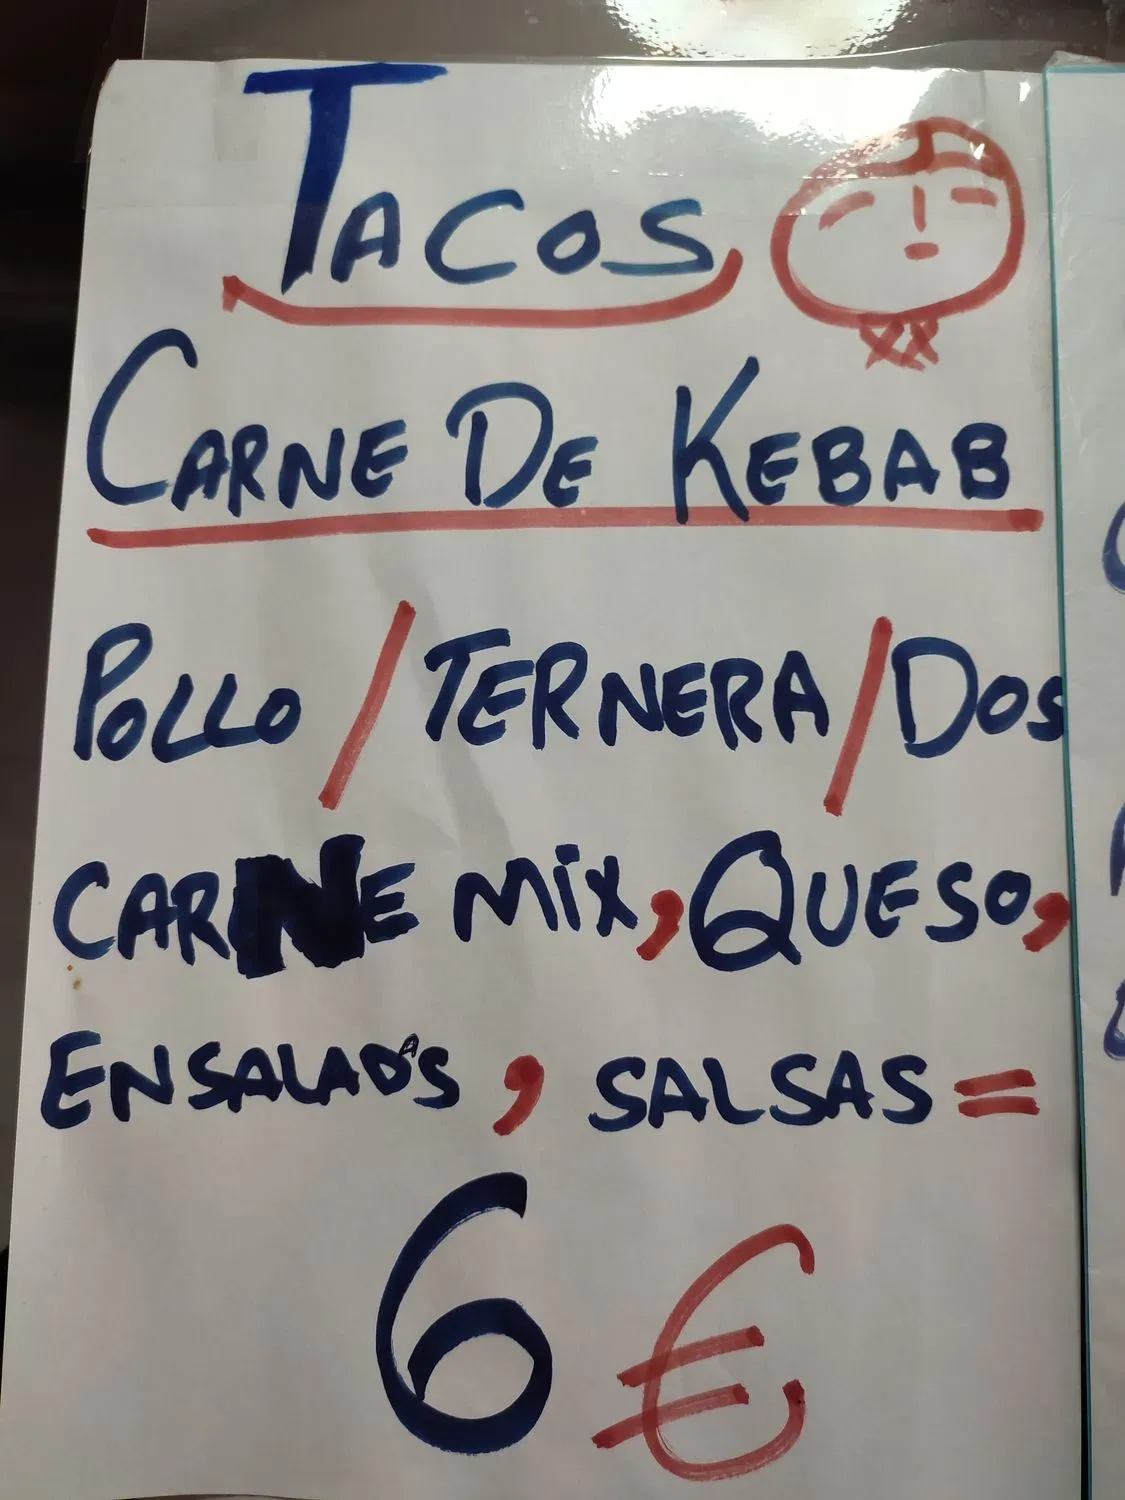 TACOS
CARNE DE KEBAB
POLLO / TERNERA / DOS
CARNE MiX, QUESO,
ENSALADAS, SALSAS =
6 €